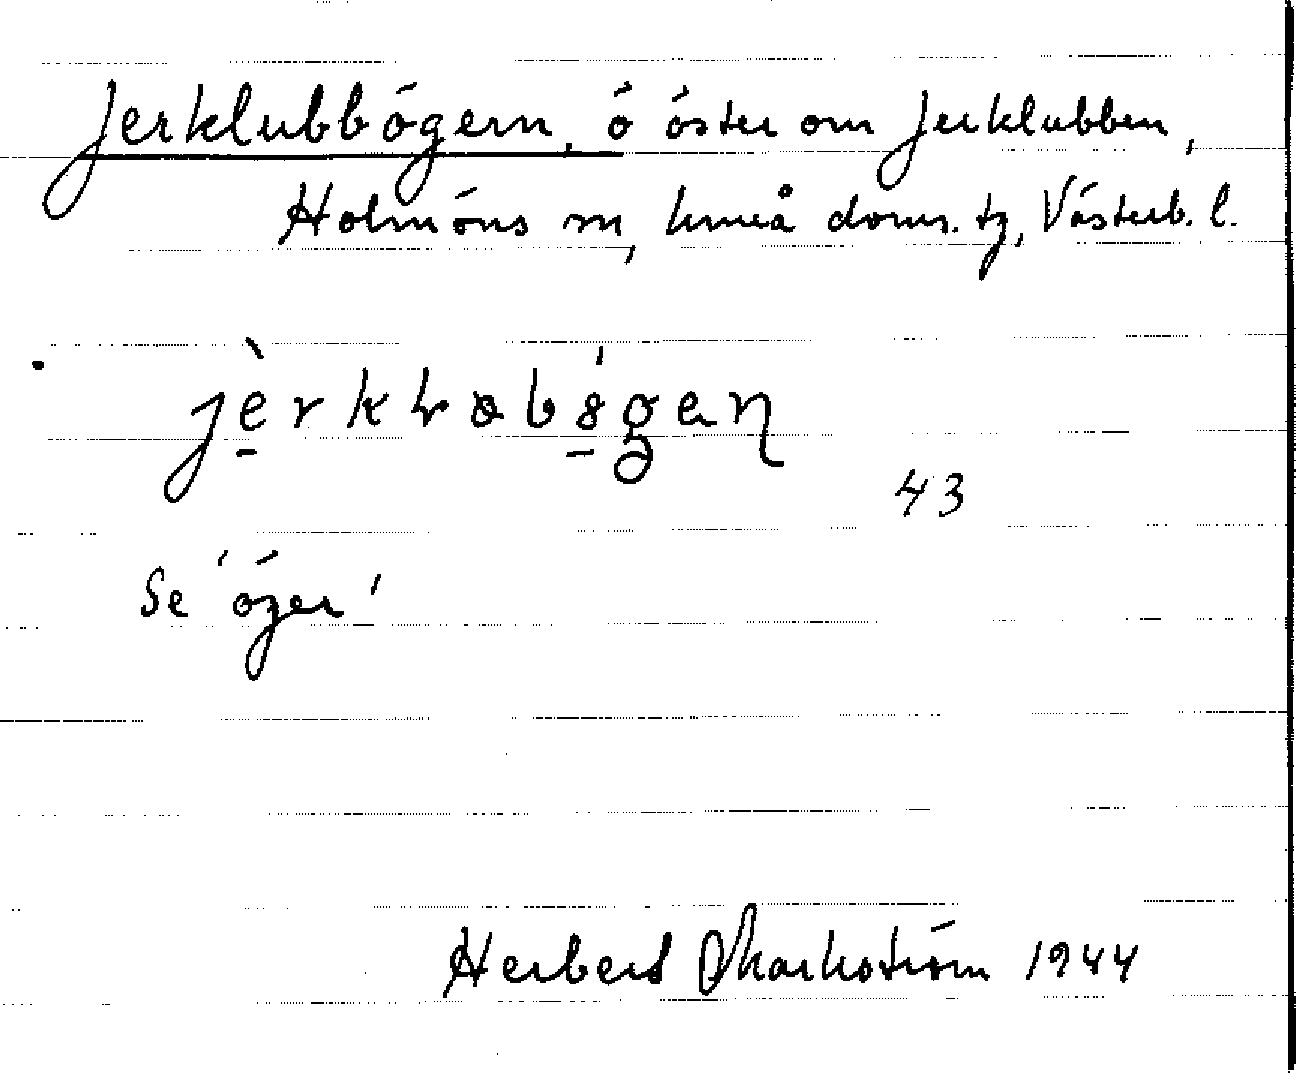 Jerklubbögern, ö öster om Jerklubben,
Holmöns sn, Umeå doms. tg, Västerb. l.
jèrkləbógen
43
Se 'öger'
Herbert Markström 1944